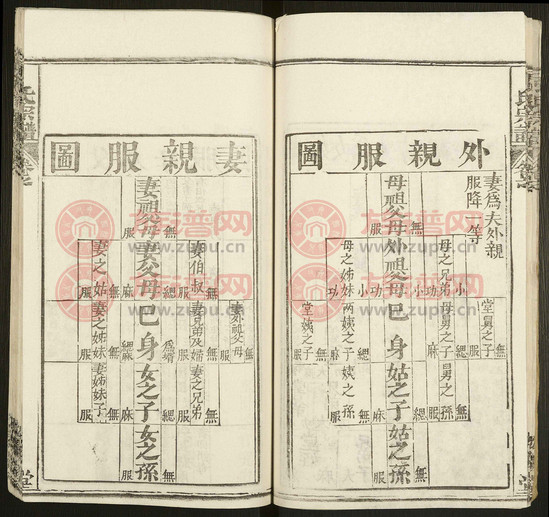 外親服圖
妻為夫外親
服降一等
堂舅之子
無服
母之兄弟
小功
母舅之子
緦麻
舅之孫
無服
母祖父母
無服
外祖父母
小功
己身
姑之子
緦麻
姑之孫
無服
母之姊妹
小功
兩姨之子
緦麻
姨之孫
無服
堂姨之子
無服
妻親服圖
妻外祖父母
無服
妻伯叔
無服
妻兄弟及婦
無服
妻之兄弟
無服
妻祖父母
無服
妻父母
緦麻
己身
女之子
緦麻
女之孫
無服
妻之姑
無服
妻之姊妹
無服
妻姊妹子
無服
氏宗譜
堂
氏宗譜
堂
族譜网
www.zupu.cn
族譜网
www.zupu.cn